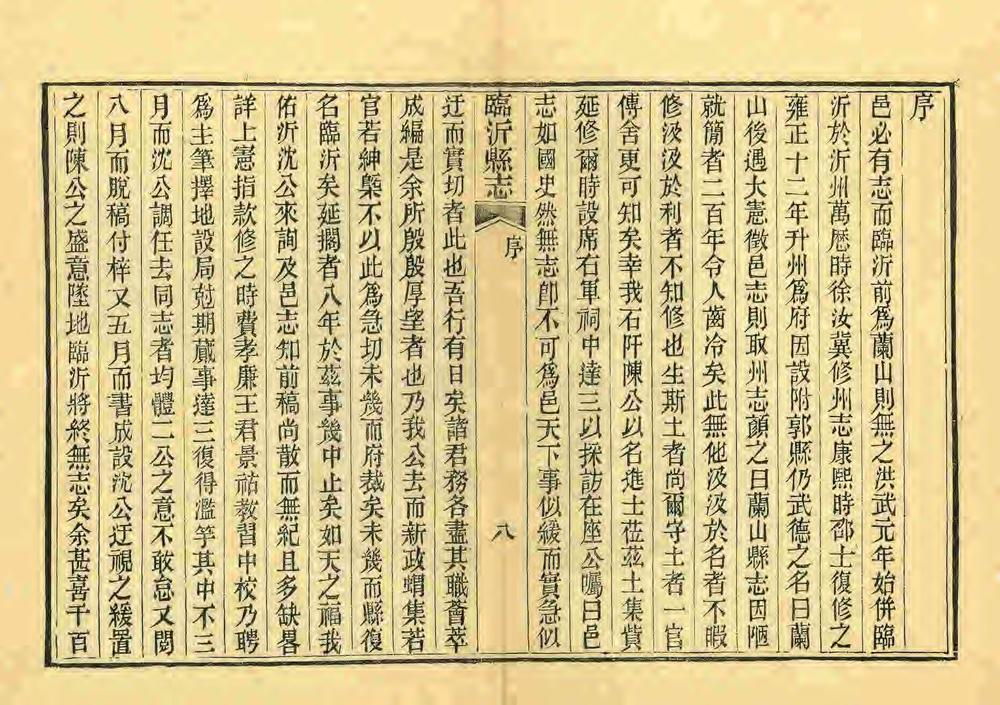 序
邑必有志而臨沂前爲蘭山則無之洪武元年始併臨
沂於沂州萬曆時徐汝冀修州志康熙時邵士復修之
雍正十二年升州爲府因設附郭縣仍武德之名曰蘭
山後遇大憲徵邑志則取州志顏之曰蘭山縣志因陋
就簡者二百年令人齒冷矣此無他汲汲於名者不暇
修汲汲於利者不知修也生斯土者尚爾守土者一官
傳舍更可知矣幸我石阡陳公以名進士莅茲土集貲
延修爾時設席右軍祠中達三以採訪在座公囑曰邑
志如國史然無志卽不可爲邑天下事似緩而實急似
臨沂縣志
序
八
迂而實切者此也吾行有日矣諸君務各盡其職薈萃
成編是余所殷殷厚望者也乃我公去而新政蝟集若
官若紳槩不以此爲急切未幾而府裁矣未幾而縣復
名臨沂矣延擱者八年於茲事幾中止矣如天之福我
佑沂沈公來詢及邑志知前稿尚散而無紀且多缺畧
詳上憲指款修之時費孝廉王君景祜教習中校乃聘
爲主筆擇地設局尅期蕆事達三復得濫竽其中不三
月而沈公調任去同志者均體二公之意不敢怠又閱
八月而脫稿付梓又五月而書成設沈公迂視之緩置
之則陳公之盛意墜地臨沂將終無志矣余甚喜千百